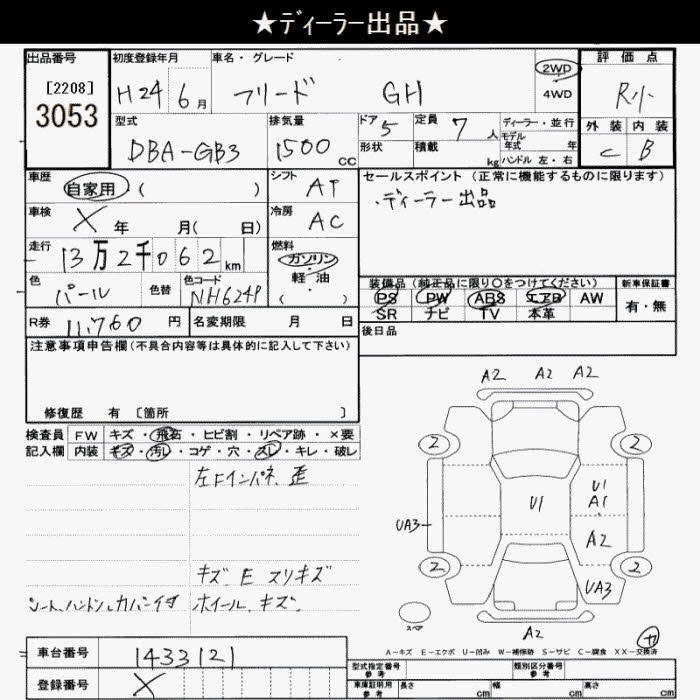 ★ディーラー出品★
出品番号 初度登録年月 車名・グレード 2WD 評価点
[2208] 4WD
3053 H24 6月 フリード GH R小
型式 排気量 ドア 5 定員 7 人 ディーラー・並行 外装 内装
モデル
年式 年
DBA-GB3 1500 cc 形状 積載 kg ハンドル 左・右 C B
車歴 自家用 ( ) シフト AT セールスポイント (正常に機能するものに限ります)
車検 X 年 月( 日) 冷房 AC ・ディーラー出品
走行 13万2千062 km 燃料 ガソリン
軽・油
( )
色 パール 色替 色コード NH624P
装備品 (純正品に限り○をつけてください) 新車保証書
PS PW ABS エアB AW 有・無
SR ナビ TV 本革
R券 11,760 円 名変期限 月 日
後日品
注意事項申告欄(不具合内容等は具体的に記入して下さい)
修復歴 有 〔箇所 〕
検査員 FW キズ・飛石・ヒビ割・リペア跡・×要
記入欄 内装 キズ・汚レ・コゲ・穴・スレ・キレ・破レ
左Fインパネ、歪
キズ E スリキズ
シート、ハンドルカバー付 ホイール、キズ、
A2 A2 A2
2 2
U1 U1
A1
UA3
A2
2 2
UA3
スペア
A2
A-キズ E-エクボ U-凹み W-補修跡 S-サビ C-腐食 XX-交換済
車台番号 1433121
登録番号 X
型式指定番号 参考 類別区分番号 参考
車庫証明用 参考 長さ cm 幅 cm 高さ cm